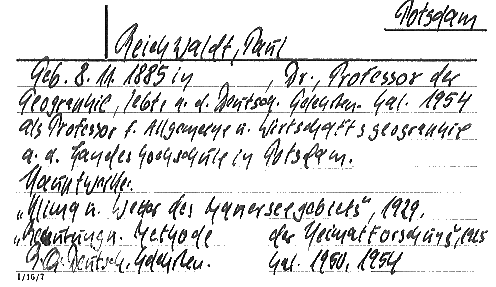 Potsdam
Reichwaldt, Paul
Geb. 8. 11. 1885 in , Dr., Professor der
Geographie, lebte a. d. Deutsch. Gelegrten. Kal. 1954
als Professor f. Allgemeine u. Wirtschaftsgeographie
a. d. Landeshochschule in Potsdam.
Hauptwerke.
„Klima u. Wetter des gebiets", 1929.
u. Methode der Heimatforschung", 1925
Deutsch. Gelehrten. Kal. 1950, 1954
1/16/7